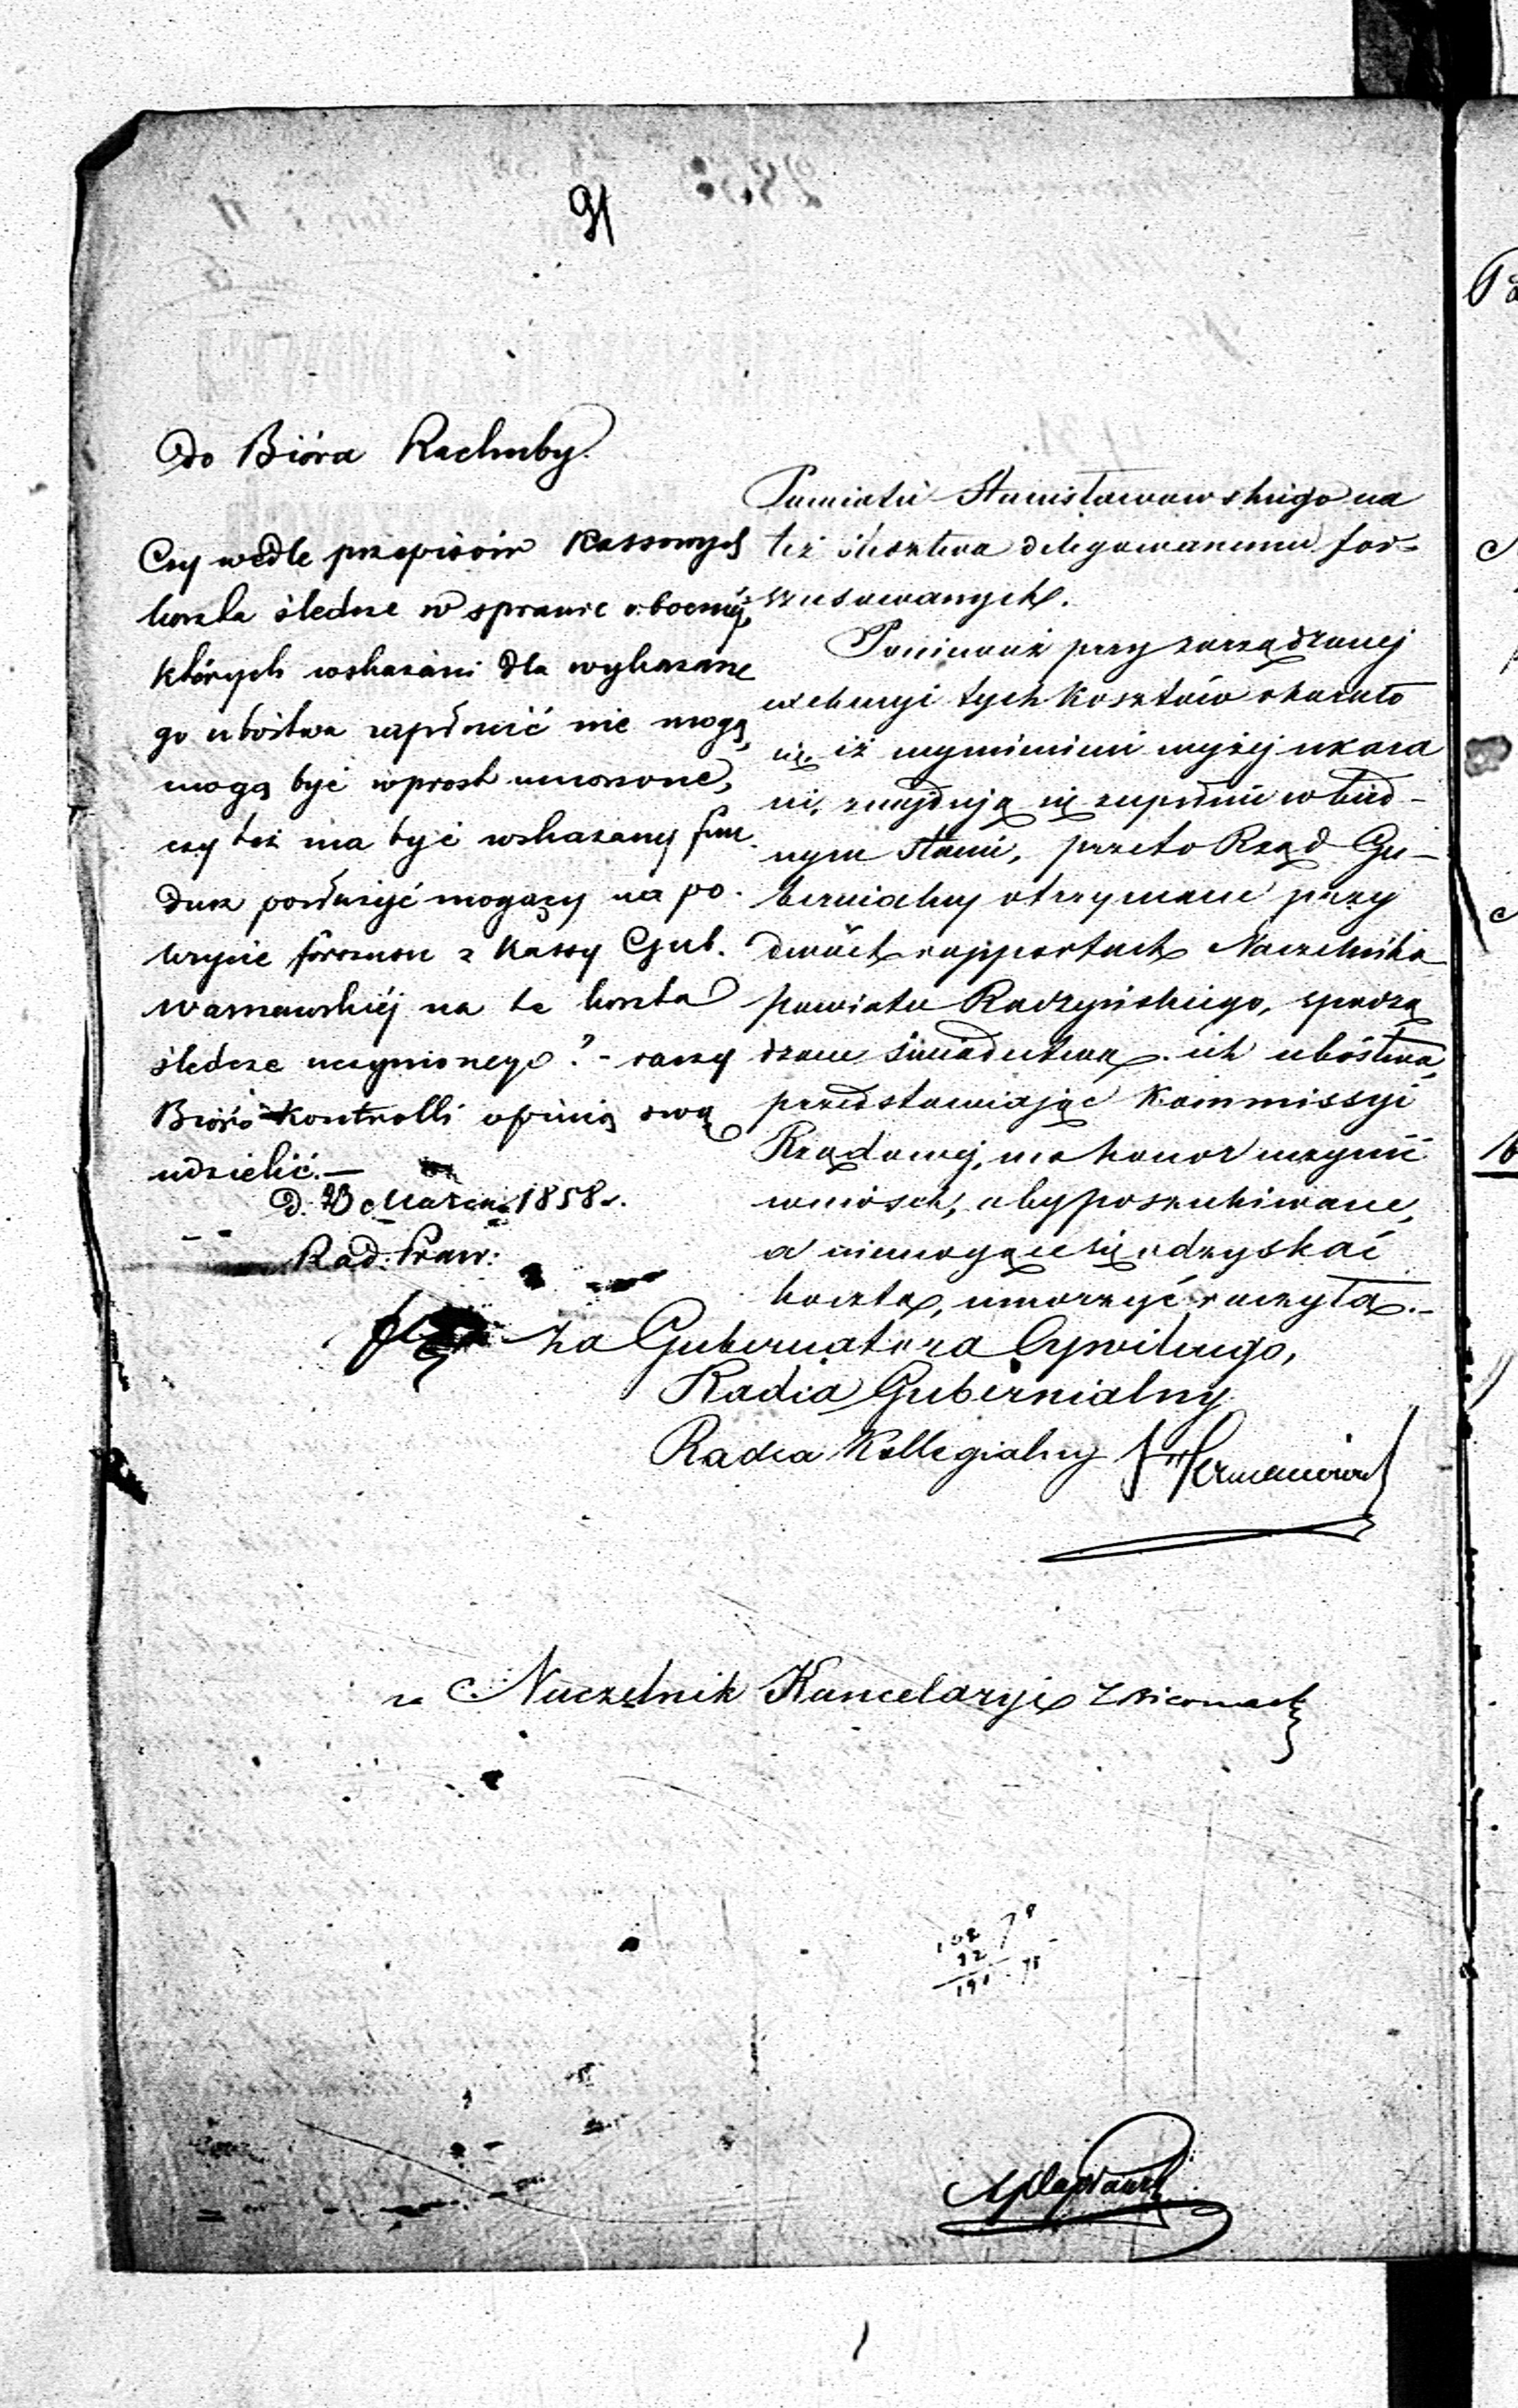 91
Do Bióra Rachuby.
Czy wedle przepisów Kassowych
koszta śledcze w sprawie obocznéj,
których wskazani dla wykazane
go ubóstwa zapłacić nie mogą,
mogą być wprost umorzone,
czy też ma być wskazany fun
dusz posłużyć mogący na po-
krycie forszusu z Kassy Gub.
Warszawskiéj na te koszta
śledcze uczynionego? - raczy
Bióro Kontrolli opinią swą
udzielić. —
D. 23 Marca 1858 r.
Rad: Praw:
Powiatu Stanisławowskiego na
też śledztwa delegowanemu for-
szusowanych.
Ponieważ przy zarządzonej
exekucyi tych kosztów okazało
się iż wymienieni wyżej ukara
ni, znajdują się zupełnie w bied-
nym stanie, przeto Rząd Gu-
bernialny otrzymane przy
dwóch rapportach Naczelnika
powiatu Radzyńskiego, sporzą
dzone świadectwa ich ubóstwa,
przedstawiając Kommissyi
Rządowej, ma honor uczynić
wniosek, aby poszukiwane,
a niemogące się odzyskać
koszta, umorzyć raczyła.-
za Gubernatora Cywilnego,
Radca Gubernialny
Radca Kollegialny Hermanowicz
za Naczelnik Kancelaryi